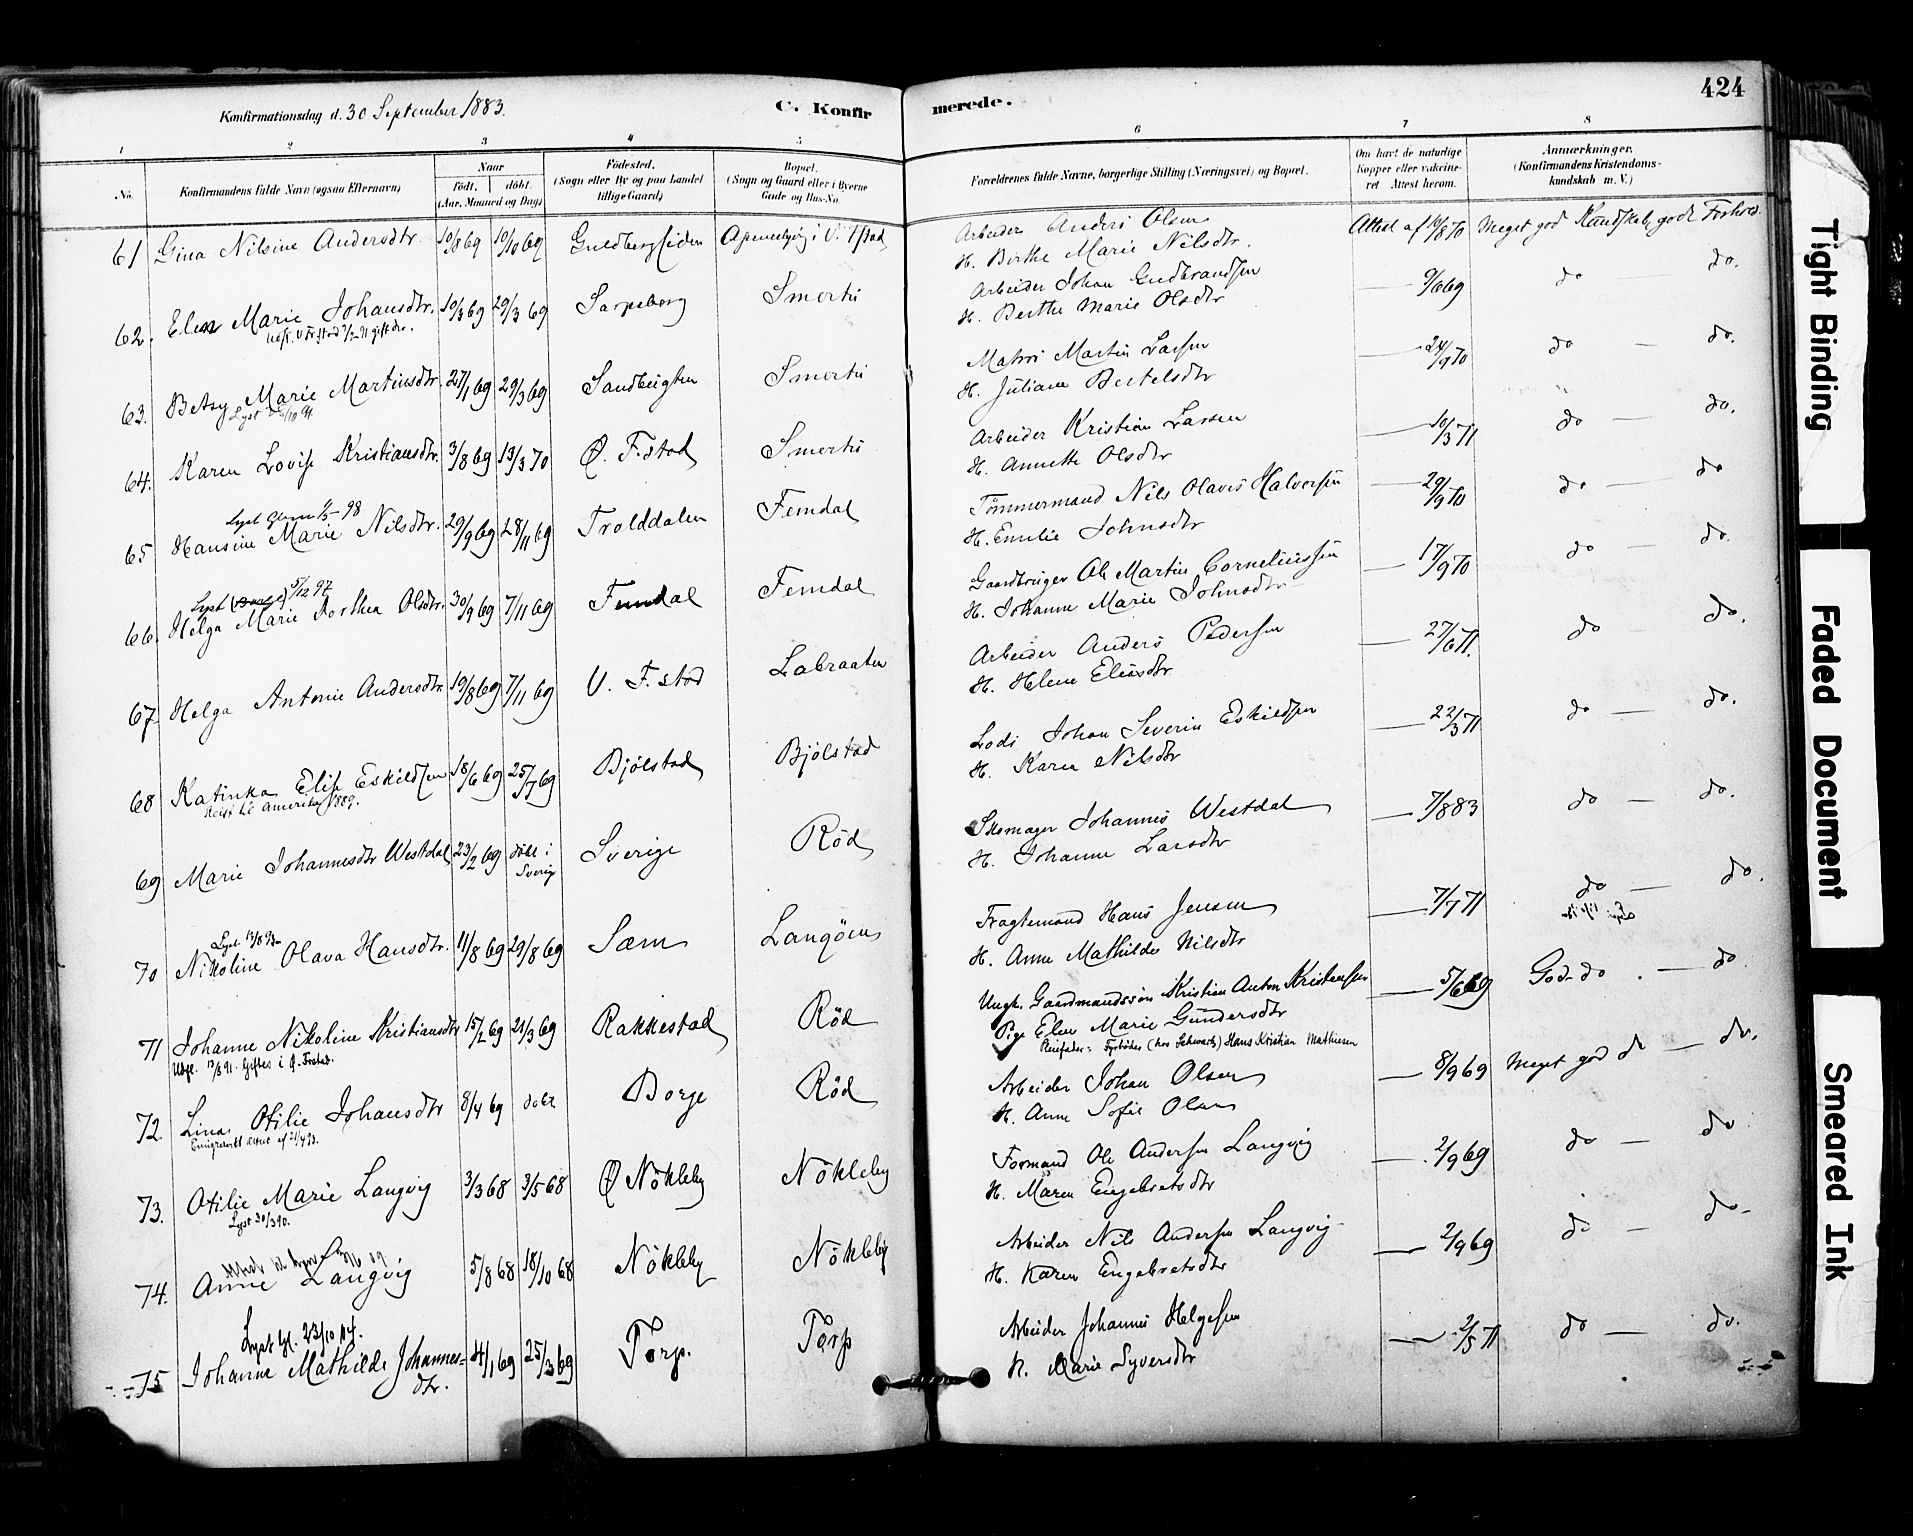 424
Konfirmationsdag d. 30 September 1883.
C. Konfir
merede.
1 2 3 4 5 6 7 8
No.
Konfirmandens fulde Navn (ogsaa Efternavn)
Naar
født. døbt.
(Aar, Maaned og Dag)
Fødested.
(Sogn eller By og paa Landet
tillige Gaard)
Bopæl.
(Sogn og Gaard eller i Byerne
Gade og Hus-No.
Forældrenes fulde Navne, borgerlige Stilling (Næringsvei) og Bopæl.
Om havt de naturlige
Kopper eller vakcine-
ret Attest herom.
Anmærkninger.
(Konfirmandens Kristendoms-
kundskab m. V.)
61 Gina Nilsine Andersdtr. 10/8 69 10/10 69 Guldbergsiden i V. Fstad Arbeider Anders Olsen Attest af 10/8 70 Meget god Kundskab, godt Forhold.
H. Birthe Marie Nilsdtr.
62. Elen Marie Johansdtr. 10/3 69 29/3 69 Sarpsborg Smertu Arbeider Johan Gudbrandsen — 9/6 69 do do.
H. Berthe Marie Olsdtr
63. Betsy Marie Martinsdtr. 27/1 69 29/3 69 Sandbugten Smertu Matros Martin Larsen — 24/9 70 do — do.
Lyst 10 94
H. Juliane Bertelsdtr
64. Karen Lovise Kristiansdtr. 3/8 69 13/3 70 Ø. F.stad Smertu Arbeider Kristian Larsen — 10/3 71 do — do.
H. Annette Olsdtr
Lyst 98
65 Hansine Marie Nilsdtr. 29/9 69 28/11 69 Trolddalen Femdal Tømmermand Nils Olavis Halvorsen — 29/9 70 do — do
H. Emilie Johnsdtr
Lyst 5/12 97
66. Helga Marie Dorthea Olsdtr. 30/9 69 7/11 69 Femdal Femdal Gaardbruger Ole Martin Corneliussen — 17/9 70 do — do.
H. Johanne Marie Johnsdtr
67. Helga Antonie Andersdtr. 19/8 69 7/11 69 V. F.stad Labraaten Arbeider Anders Pedersen — 27/6 71. do — do.
H. Helene Eliasdtr
68 Katinka Elise Eskildsen 18/6 69 25/7 69 Bjølstad Bjølstad Lods Johan Severin Eskildsen — 22/3 71 do — do.
Reist til Amerika 1889.
H. Karen Nilsdtr
69 Marie Johannesdtr Westdal 23/2 69 døbt i Sverig Sverige Rød Skomager Johannes Westdal — 7/8 83 do — do.
H. Johanne Larsdtr
Lyst 13/8 93
70 Nikoline Olava Hansdtr. 11/8 69 29/8 69 Sæm Langøen Fragtemand Hans Jensen — 7/7 71 do — do.
H. Anne Mathilde Nilsdtr
71 Johanne Nikoline Kristiansdtr 15/2 69 21/3 69 Rakkestad Rød Ungk. Gaardmandssøn Kristian Anton Kristensen — 5/6 69 God do. — do
Udfl. 13/8 91. Giftes i Ø. Frstad.
Pige Elen Marie Gundersdtr
Pleiefader: Fyrbøder (hos Schwartz) Hans Kristian Mathisen
72. Lina Otilie Johansdtr 8/4 69 døbt Borge Rød Arbeider Johan Olsen — 8/9 69 Meget god do — do.
Emigrerett attest af 21/4 93.
H. Anne Sofie Olsen
73. Otilie Marie Langvig 3/3 68 3/5 68 Ø Nøkleby Nøkleby Formand Ole Andersen Langvig — 2/9 69 do — do
Lyst 30/3 90.
H. Maren Engebretsdtr
74. Anne Langvig 5/8 68 18/10 68 Nøkleby Nøkleby Arbeider Nils Andersen Langvig — 2/9 69 do — do-
H. Karen Engebretsdtr
Lyst 23/10 04.
75 Johanne Mathilde Johannes- 4/1 69 25/3 69 Torp. Torp Arbeider Johannes Helgesen — 2/5 71 do — do.
dtr. H. Marie Syversdtr
Tight Binding
Faded Document
Smeared Ink